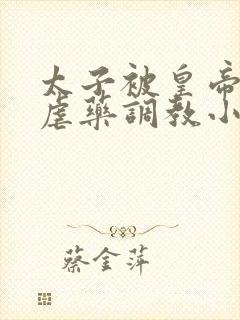 太子被皇帝
虐藥調教小
蔡金萍